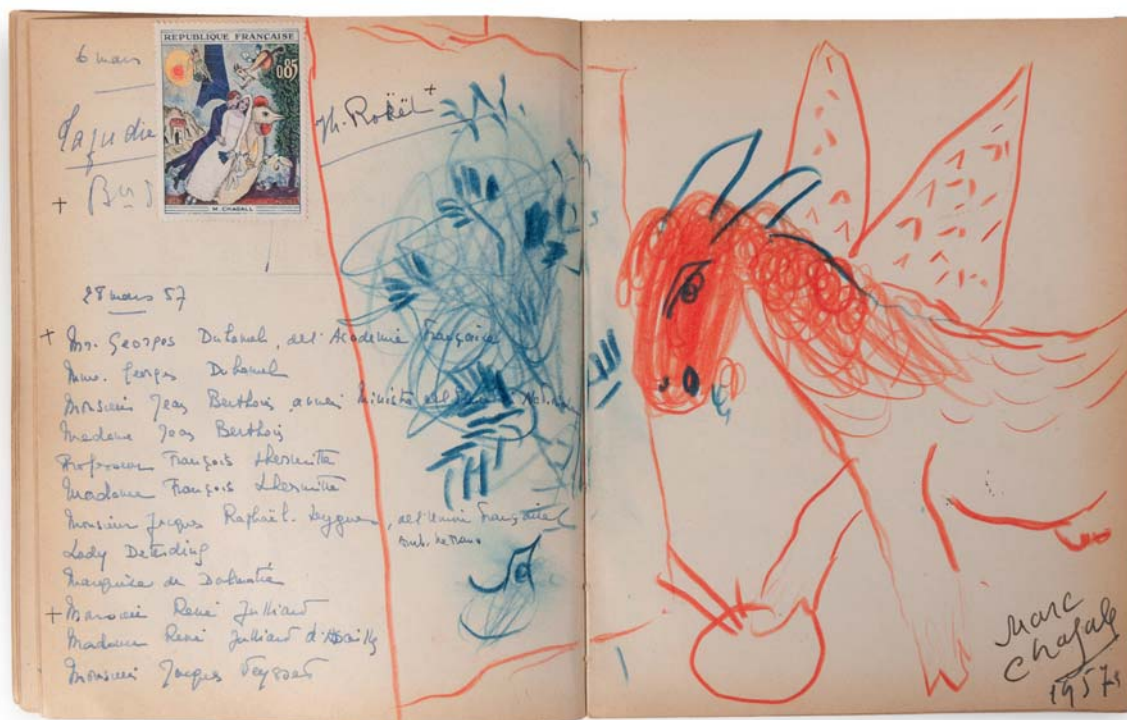 6 mars
REPUBLIQUE FRANÇAISE
0,85
M. CHAGALL
Th. Rokël +
+
28 mars 57
+ Mr. Georges Duhamel, de l'Academie Française
Mme. Georges Duhamel
Monsieur Jean Berthoin, ancien Ministre
Madame Jean Berthoin
Professeur François Lhermitte
Madame François Lhermitte
Monsieur Jacques Raphaël-Leygues, de l'Union Française
Lady Deterding
Marquise de Dalmatie
+ Monsieur René Julliard
Madame René Julliard d'Assailly
Monsieur Jacques
Marc
Chagall
1957